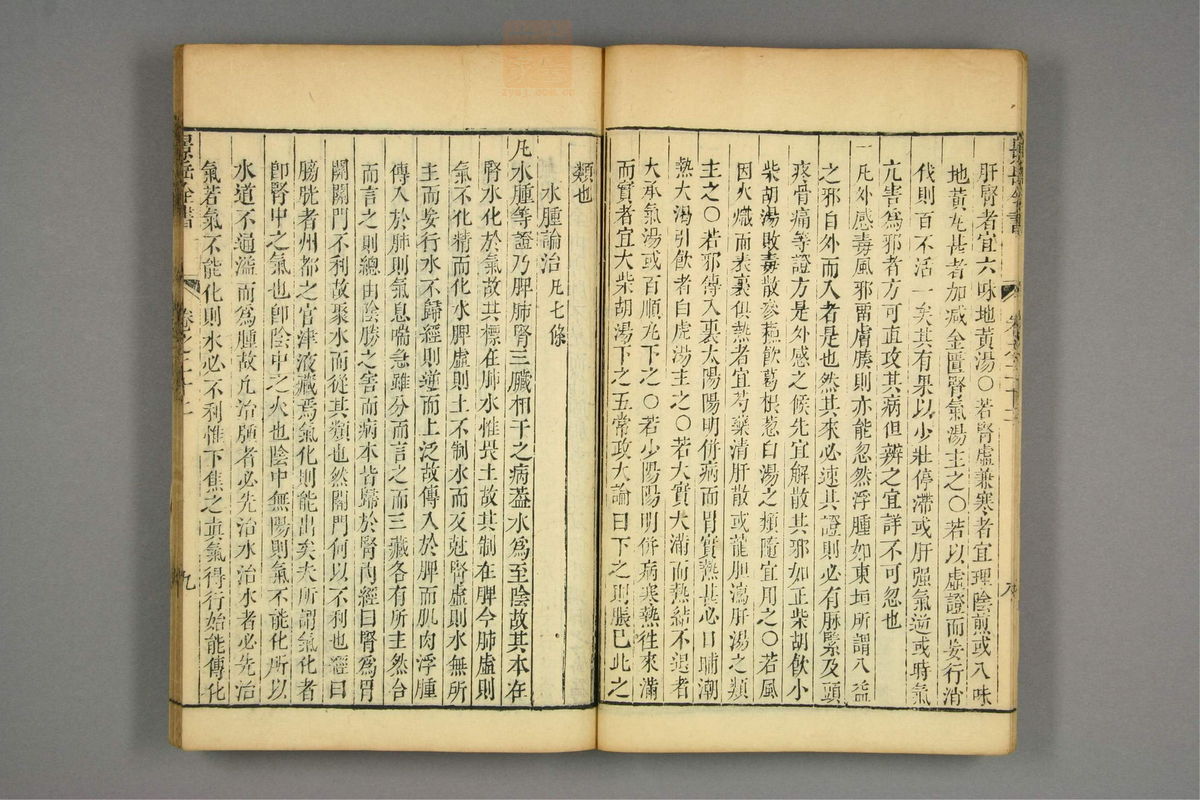 肝腎者宜六味地黃湯〇若腎虛兼寒者宜理陰煎或八味
地黃丸甚者加減金匱腎氣湯主之〇若以虛證而妄行消
伐則百不活一矣其有果以少壯停滯或肝强氣逆或時氣
亢害爲邪者方可直攻其病但辨之宜詳不可忽也
一凡外感毒風邪留膚腠則亦能忽然浮腫如東垣所謂八益
之邪自外而入者是也然其來必速其證則必有脉緊及頭
疼骨痛等證方是外感之候先宜解散其邪如正柴胡飲小
柴胡湯敗毒散參蘓飲葛根葱白湯之類隨宜用之〇若風
因火熾而表裏俱熱者宜芍藥清肝散或龍胆瀉肝湯之類
主之〇若邪傳入裏太陽陽明併病而胃實熱甚必日晡潮
熱大渴引飲者白虎湯主之〇若大實大滿而熱結不退者
大承氣湯或百順丸下之〇若少陽陽明併病寒熱徃來滿
而實者宜大柴胡湯下之五常政大論曰下之則脹已此之
景岳全書
卷之二十二
九
類也
水腫論治 凡七條
凡水腫等證乃脾肺腎三臟相干之病葢水爲至陰故其本在
腎水化於氣故其標在肺水惟畏土故其制在脾今肺虛則
氣不化精而化水脾虛則土不制水而反尅腎虛則水無所
主而妄行水不歸經則逆而上泛故傳入於脾而肌肉浮腫
傳入於肺則氣息喘急雖分而言之而三臟各有所主然合
而言之則總由陰勝之害而病本皆歸於腎内經曰腎爲胃
關關門不利故聚水而從其類也然關門何以不利也經曰
膀胱者州都之官津液藏焉氣化則能出矣夫所謂氣化者
卽腎中之氣也卽陰中之火也陰中無陽則氣不能化所以
水道不通溢而爲腫故凡治腫者必先治水治水者必先治
氣若氣不能化則水必不利惟下焦之眞氣得行始能傳化